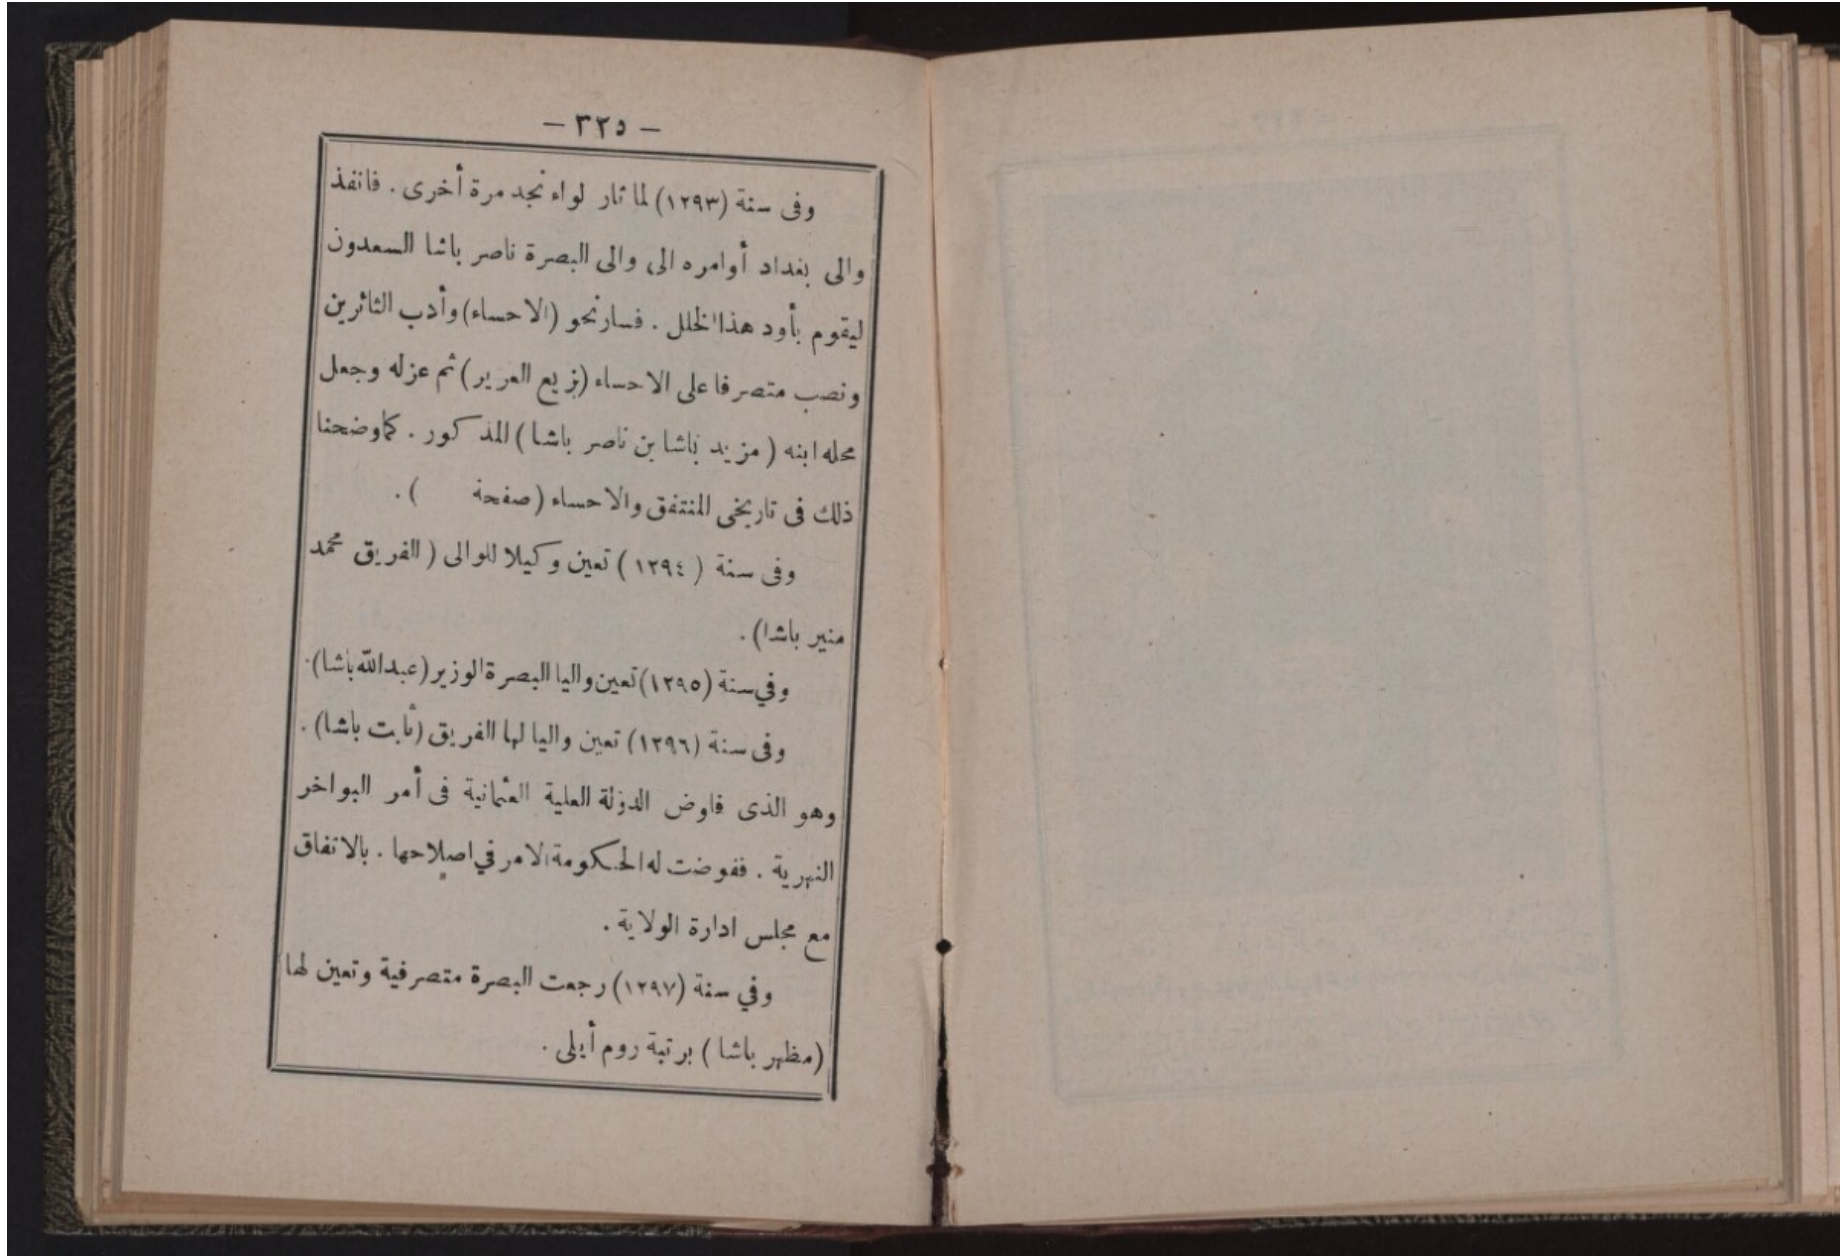 — ٣٢٥ —
وفى سنة (١٢٩٣) لما ثار لواء نجد مرة أخرى . فانفذ
والى بغداد أوامره الى والى البصرة ناصر باشا السعدون
ليقوم بأود هذا الخلل . فسار نحو (الاحساء) وأدب الثائرين
ونصب متصرفا على الاحساء (بزيع العرير) ثم عزله وجعل
محله ابنه ( مزيد باشا بن ناصر باشا ) المذكور . كما وضحنا
ذلك فى تاريخى المنتفق والاحساء (صفحة ) .
وفى سنة ( ١٢٩٤ ) تعين وكيلا للوالى ( الفريق محمد
منير باشا) .
وفي سنة (١٢٩٥) تعين واليا البصرة الوزير (عبد الله باشا) .
وفى سنة (١٢٩٦) تعين واليا لها الفريق (ثابت باشا) .
وهو الذى فاوض الدولة العلية العثمانية فى أمر البواخر
النهرية . ففوضت له الحكومة الامر في اصلاحها . بالاتفاق
مع مجلس ادارة الولاية .
وفي سنة (١٢٩٧) رجعت البصرة متصرفية وتعين لها
(مظهر باشا ) برتبة روم أيلى .